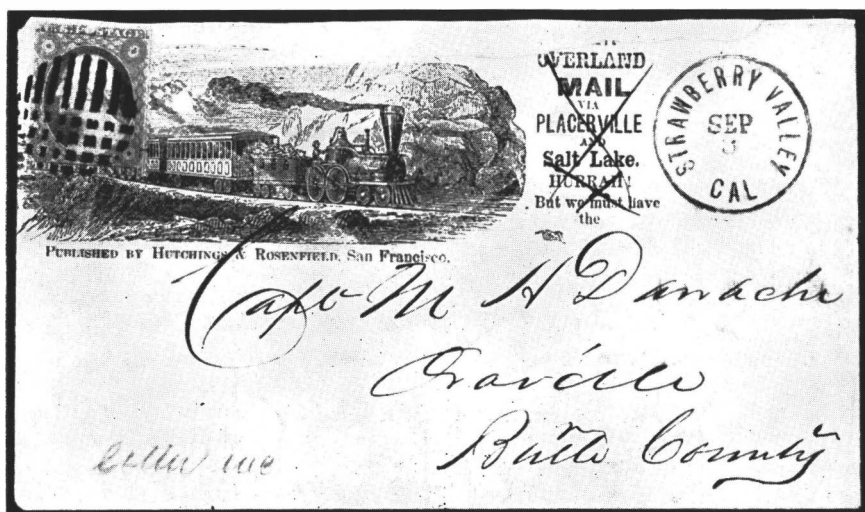 OVERLAND
MAIL
VIA
PLACERVILLE
AND
Salt Lake.
HURRAH!
But we must have
the
STRAWBERRY VALLEY
SEP
CAL
PUBLISHED BY HUTCHINGS & ROSENFIELD, San Francisco.
Capt M H Danache
Oroville
Butte County